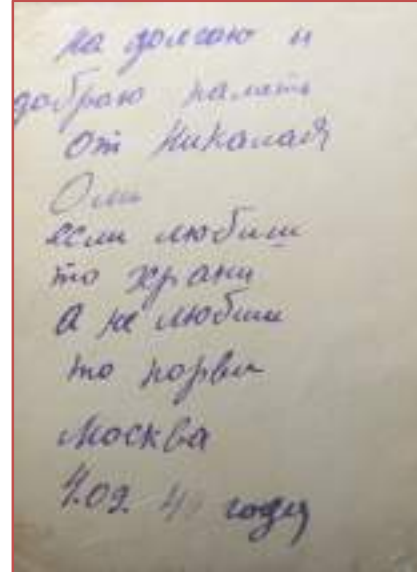 на долгою и
доброю память
От Никалая
Оли
если любиш
то храни
а не любиш
то порви
Москва
4.09. году